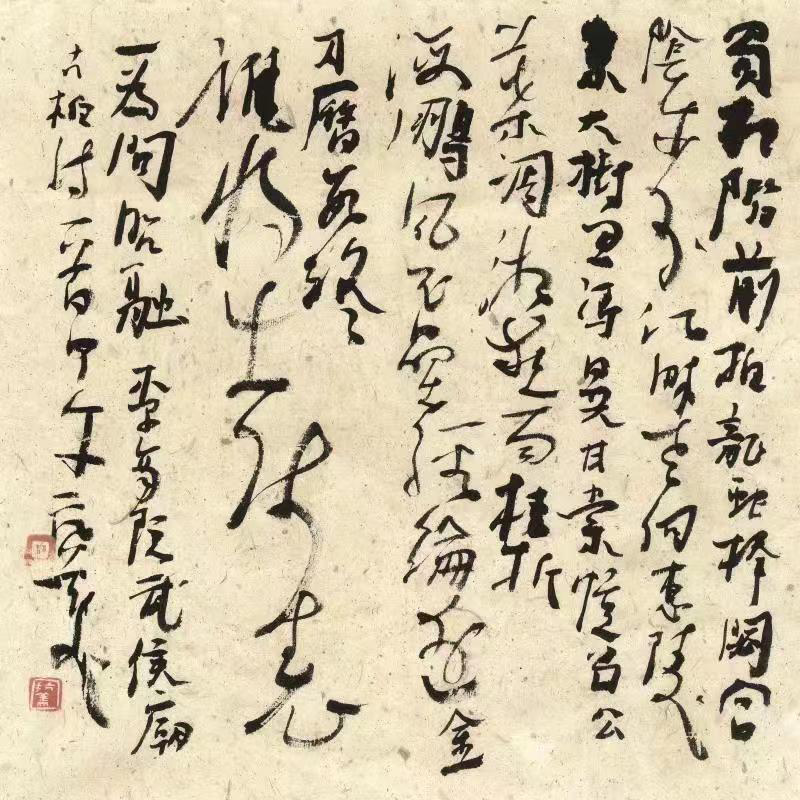 蜀相階前柏龍蛇捧閟宫
陰成外江畔老向惠陵
東大樹思馮異甘棠憶召公
葉凋湘燕雨枝折
海鵬風玉壘經綸遠金
刀曆數終
誰將出師表
一為問昭融 李商隱武侯廟
古柏詩一首甲午